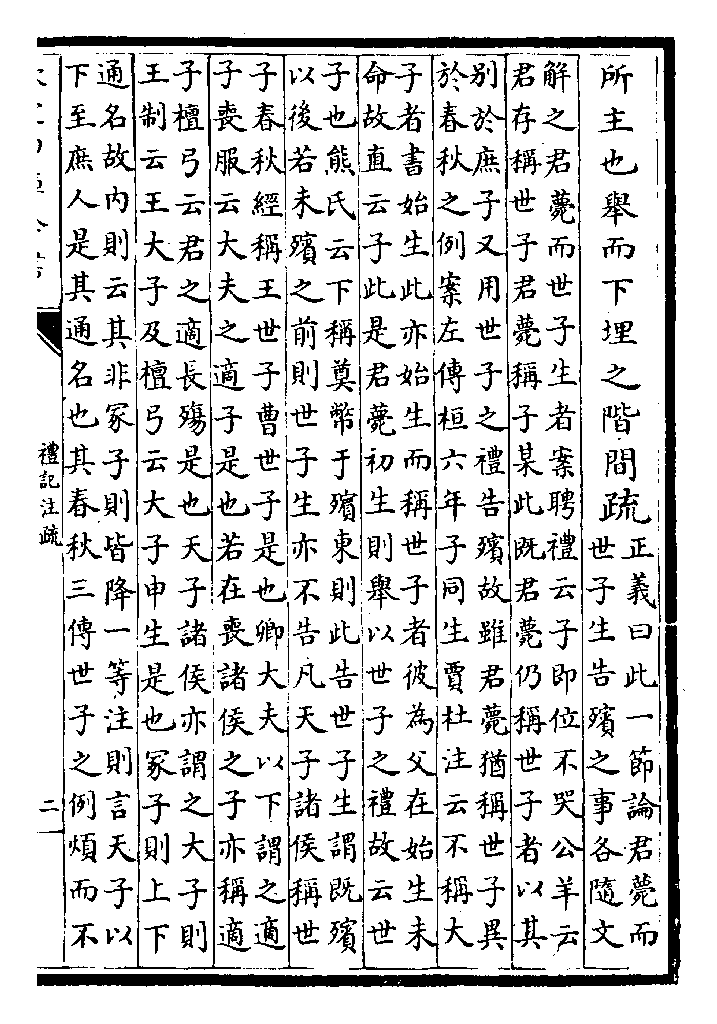 所主也舉而下埋之階間疏
正義曰此一節論君薨而
世子生告殯之事各隨文
解之君薨而世子生者案聘禮云子即位不哭公羊云
君存稱世子君薨稱子某此既君薨仍稱世子者以其
别於庶子又用世子之禮告殯故雖君薨猶稱世子異
於春秋之例案左傳桓六年子同生賈杜注云不稱大
子者書始生此亦始生而稱世子者彼為父在始生未
命故直云子此是君薨初生則舉以世子之禮故云世
子也熊氏云下稱奠幣于殯東則此告世子生謂既殯
以後若未殯之前則世子生亦不告凡天子諸侯稱世
子春秋經稱王世子曹世子是也卿大夫以下謂之適
子喪服云大夫之適子是也若在喪諸侯之子亦稱適
子檀弓云君之適長殤是也天子諸侯亦謂之大子則
王制云王大子及檀弓云大子申生是也冡子則上下
通名故内則云其非冡子則皆降一等注則言天子以
下至庶人是其通名也其春秋三傳世子之例煩而不
禮記注疏
二